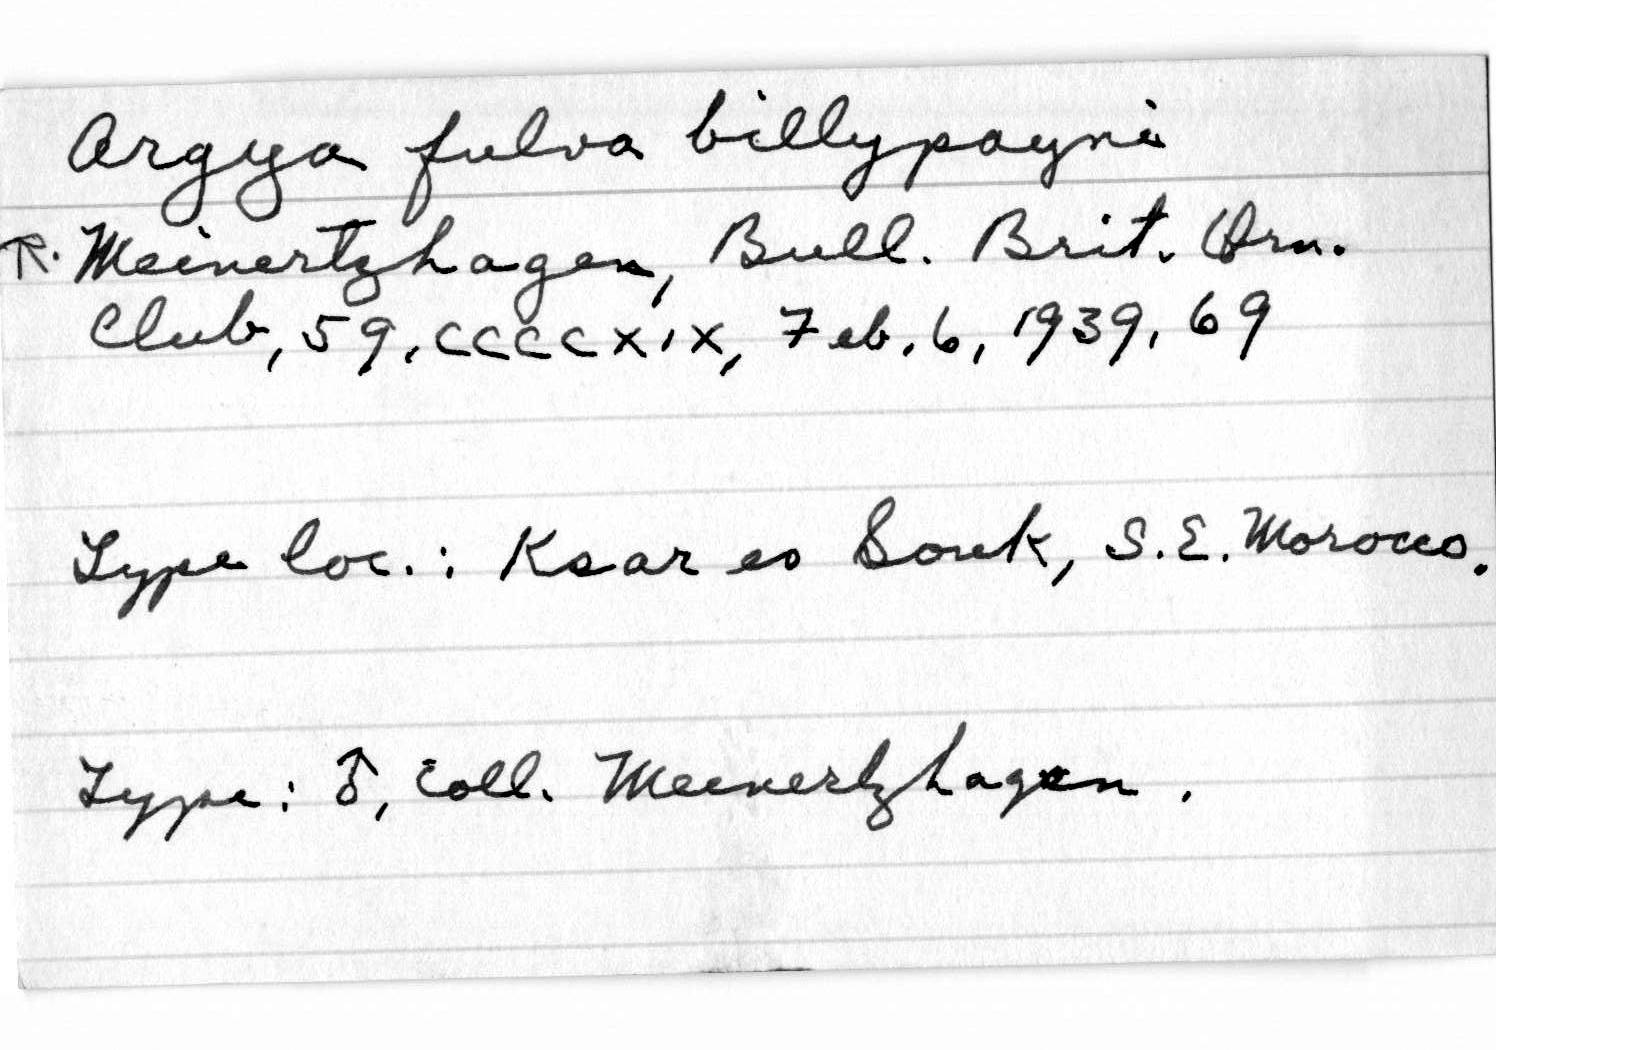 Argya fulva billypayni
R. Meinertzhagen, Bull. Brit. Orn.
Club, 59, CCCCXIX, Feb. 6, 1939, 69
Type loc.: Ksar es Souk, S.E. Morocco.
Type: ♂, Coll. Meinertzhagen.